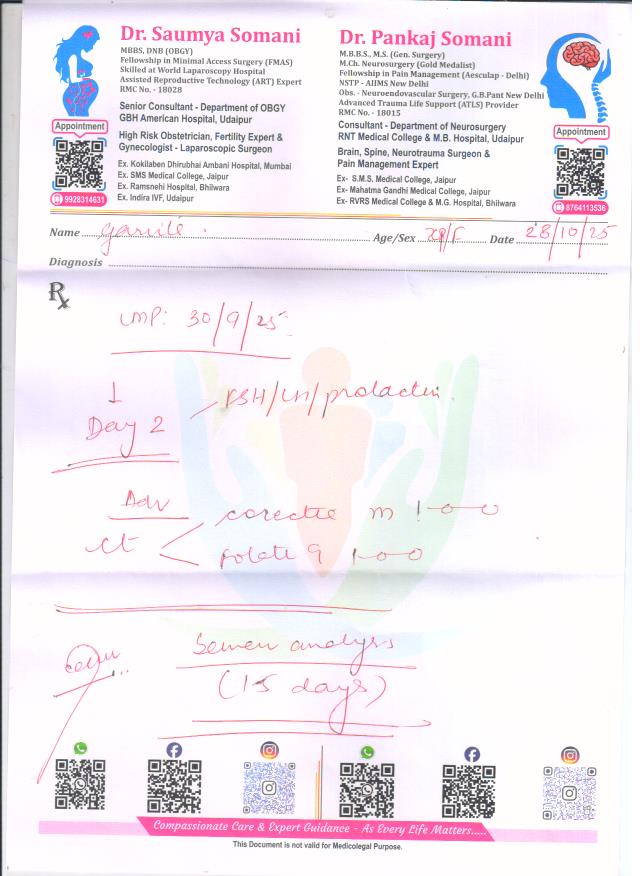 Dr. Saumya Somani
MBBS, DNB (OBGY)
Fellowship in Minimal Access Surgery (FMAS)
Skilled at World Laparoscopy Hospital
Assisted Reproductive Technology (ART) Expert
RMC No. - 18028
Senior Consultant - Department of OBGY
GBH American Hospital, Udaipur
High Risk Obstetrician, Fertility Expert &
Gynecologist - Laparoscopic Surgeon
Ex. Kokilaben Dhirubhai Ambani Hospital, Mumbai
Ex. SMS Medical College, Jaipur
Ex. Ramsnehi Hospital, Bhilwara
Ex. Indira IVF, Udaipur
Appointment
9928314631
Dr. Pankaj Somani
M.B.B.S., M.S. (Gen. Surgery)
M.Ch. Neurosurgery (Gold Medalist)
Fellowship in Pain Management (Aesculap - Delhi)
NSTP - AIIMS New Delhi
Obs. - Neuroendovascular Surgery, G.B.Pant New Delhi
Advanced Trauma Life Support (ATLS) Provider
RMC No. - 18015
Consultant - Department of Neurosurgery
RNT Medical College & M.B. Hospital, Udaipur
Brain, Spine, Neurotrauma Surgeon &
Pain Management Expert
Ex- S.M.S. Medical College, Jaipur
Ex- Mahatma Gandhi Medical College, Jaipur
Ex- RVRS Medical College & M.G. Hospital, Bhilwara
Appointment
8764113536
Name Age/Sex /F Date 28/10/25
Diagnosis
Rx
LMP: 30/9/25
Day 2 FSH/LH/prolactin
Adv
ct m 1-0-0
folate 9 1-0-0
Semen analysis
(15 days)
Compassionate Care & Expert Guidance - As Every Life Matters.....
This Document is not valid for Medicolegal Purpose.